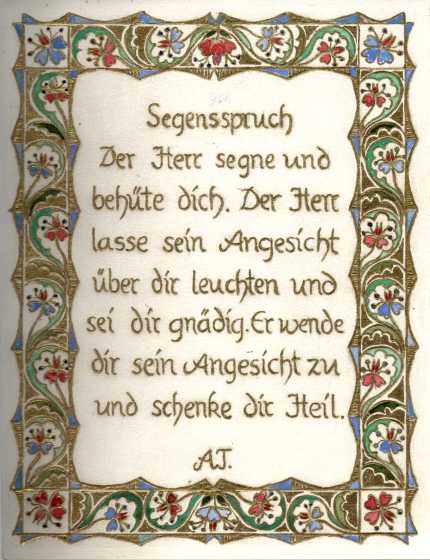 Segensspruch
Der Herr segne und
behüte dich. Der Herr
lasse sein Angesicht
über dir leuchten und
sei dir gnädig. Er wende
dir sein Angesicht zu
und schenke dir Heil.
A.T.